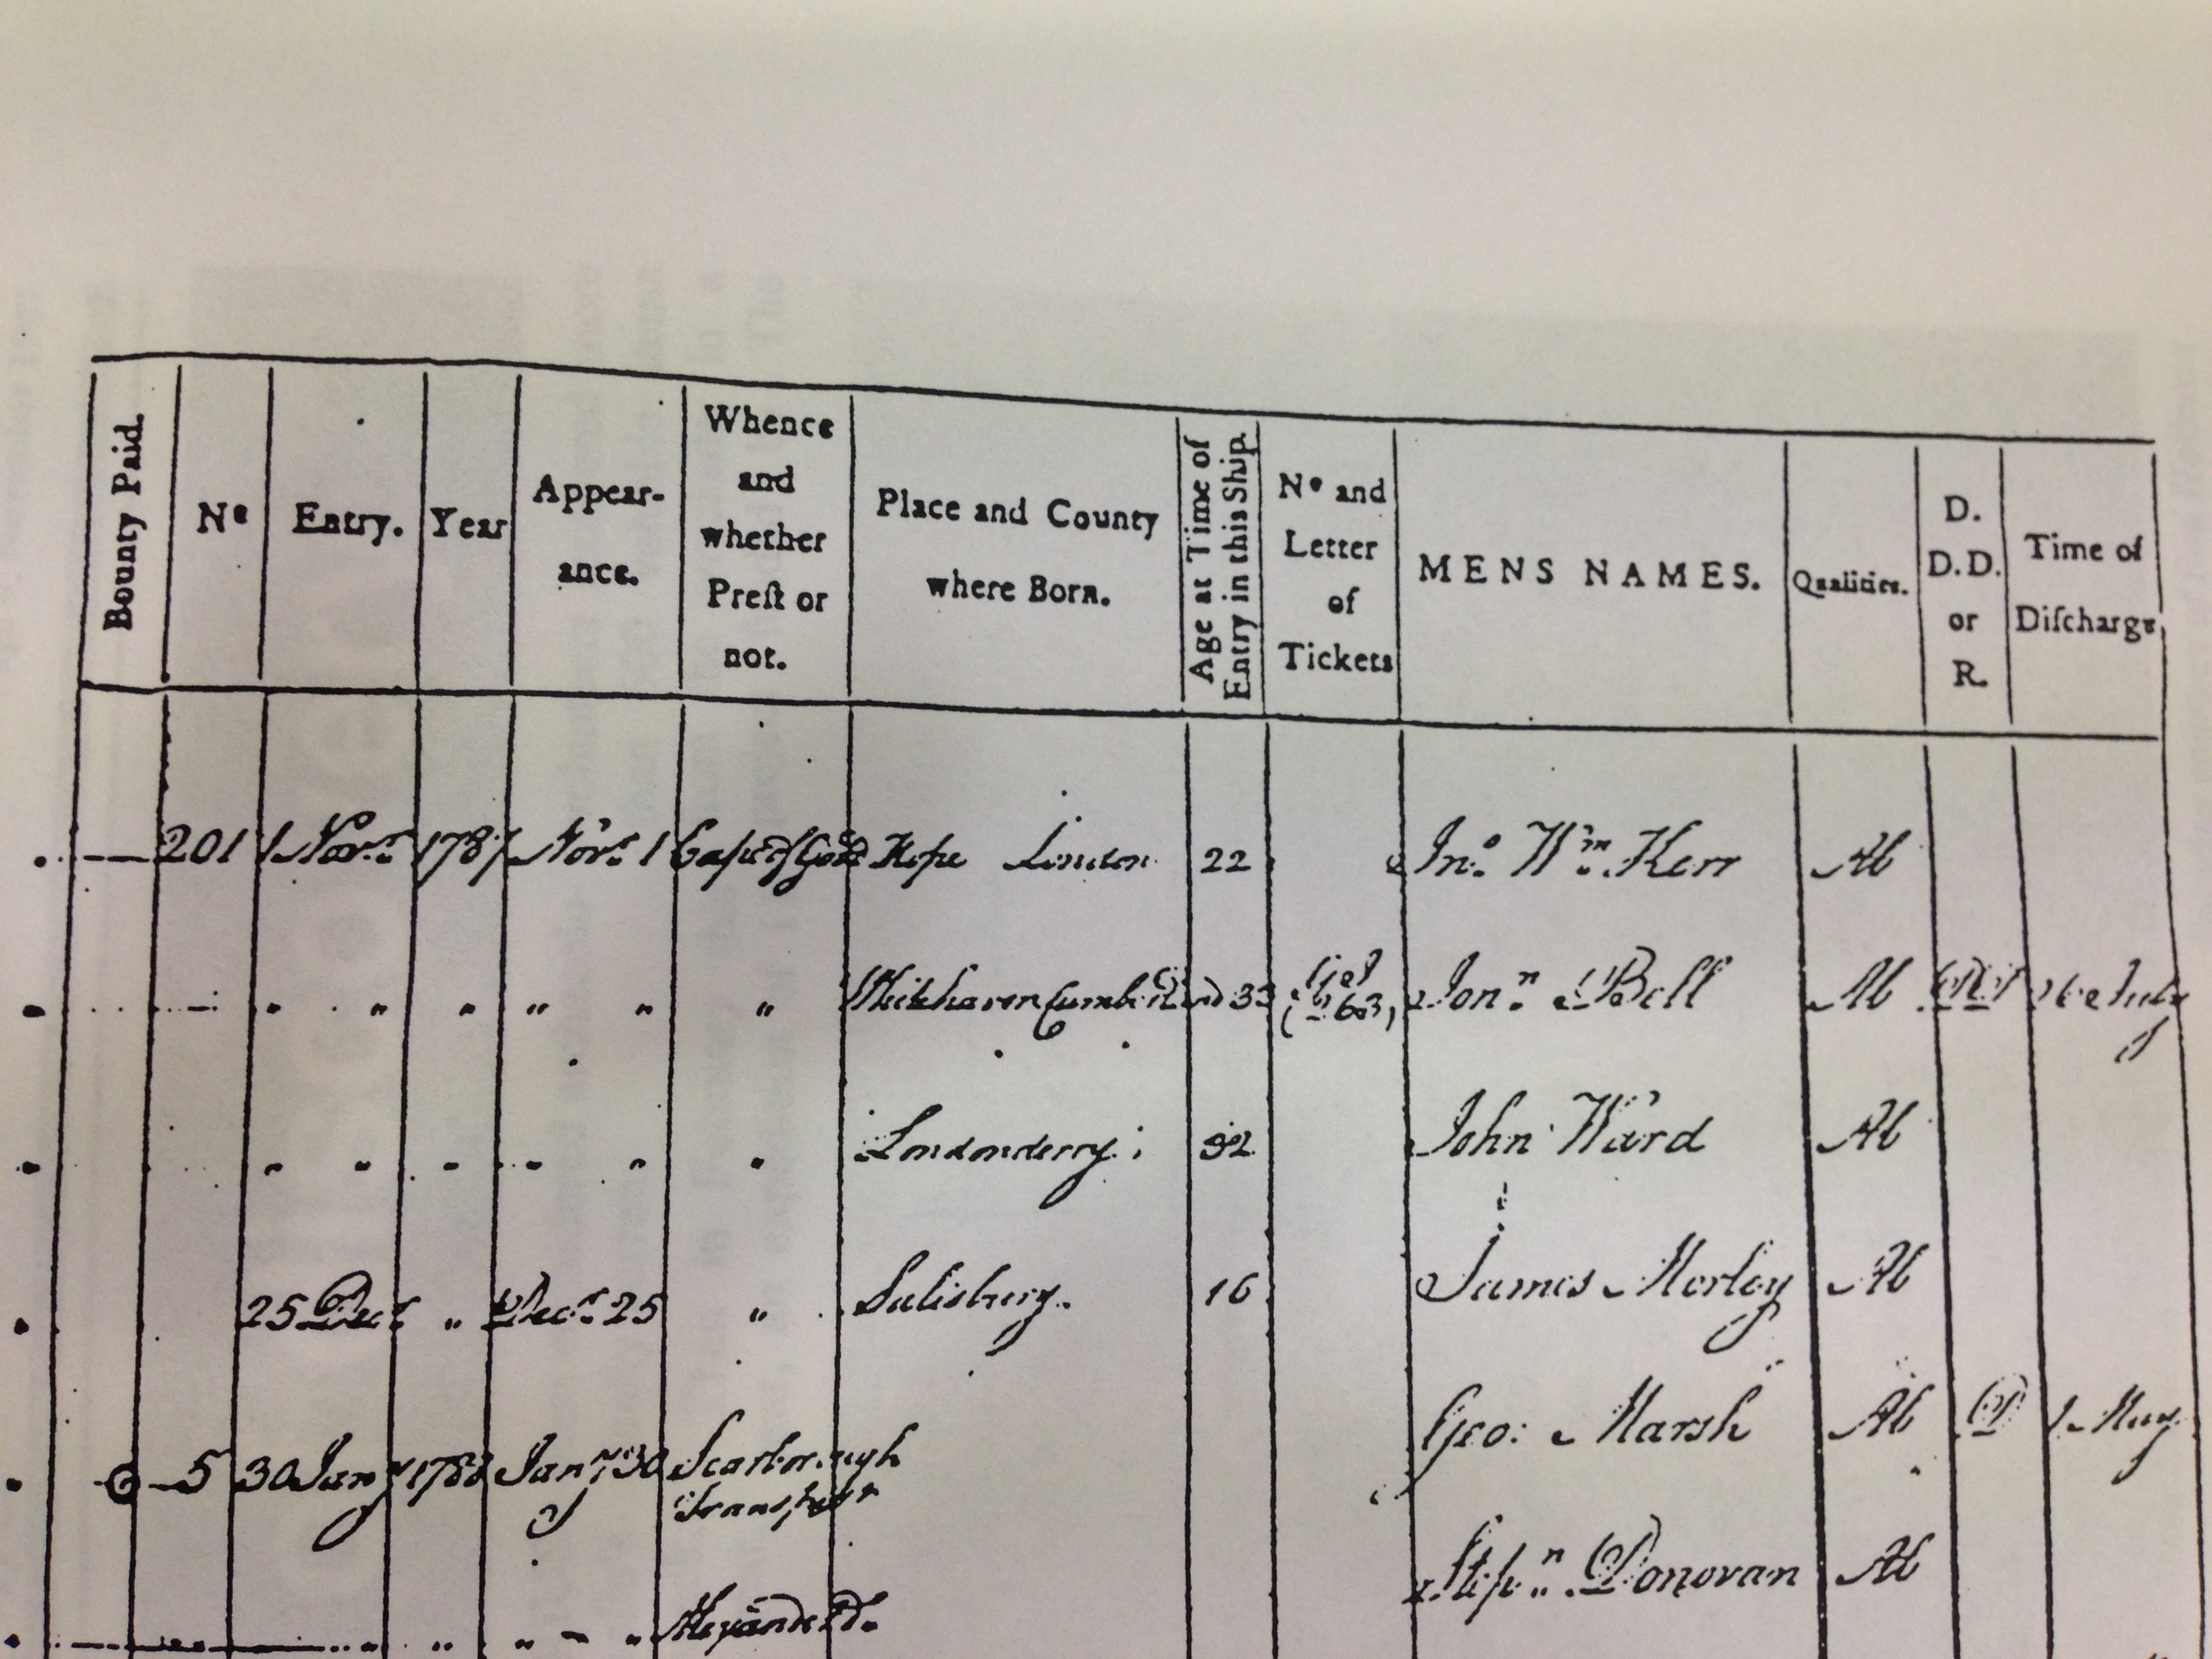 Bounty Paid.
Nº
Entry.
Year
Appear-
ance.
Whence
and
whether
Preſt or
not.
Place and County
where Born.
Age at Time of
Entry in this Ship.
Nº and
Letter
of
Tickets
MENS NAMES.
Qualities.
D.
D.D.
or
R.
Time of
Diſcharge
201 1 Novr. 1787 Novr. 1 Cape of Good Hope London 22 Jno. Wm. Kerr Ab
" " " " " " Whitehaven Cumberland 33 Jonn. Bell Ab July
" " " " " " Londonderry 32 John Ward Ab
25 Decr. " Decr. 25 " Salisbury. 16 James Morley Ab
5 30 Jany 1788 Jany 30 Scarborough Geo: Marsh Ab D 1 May
Transport
" " " " Alexander Do. Stepn. Donovan Ab